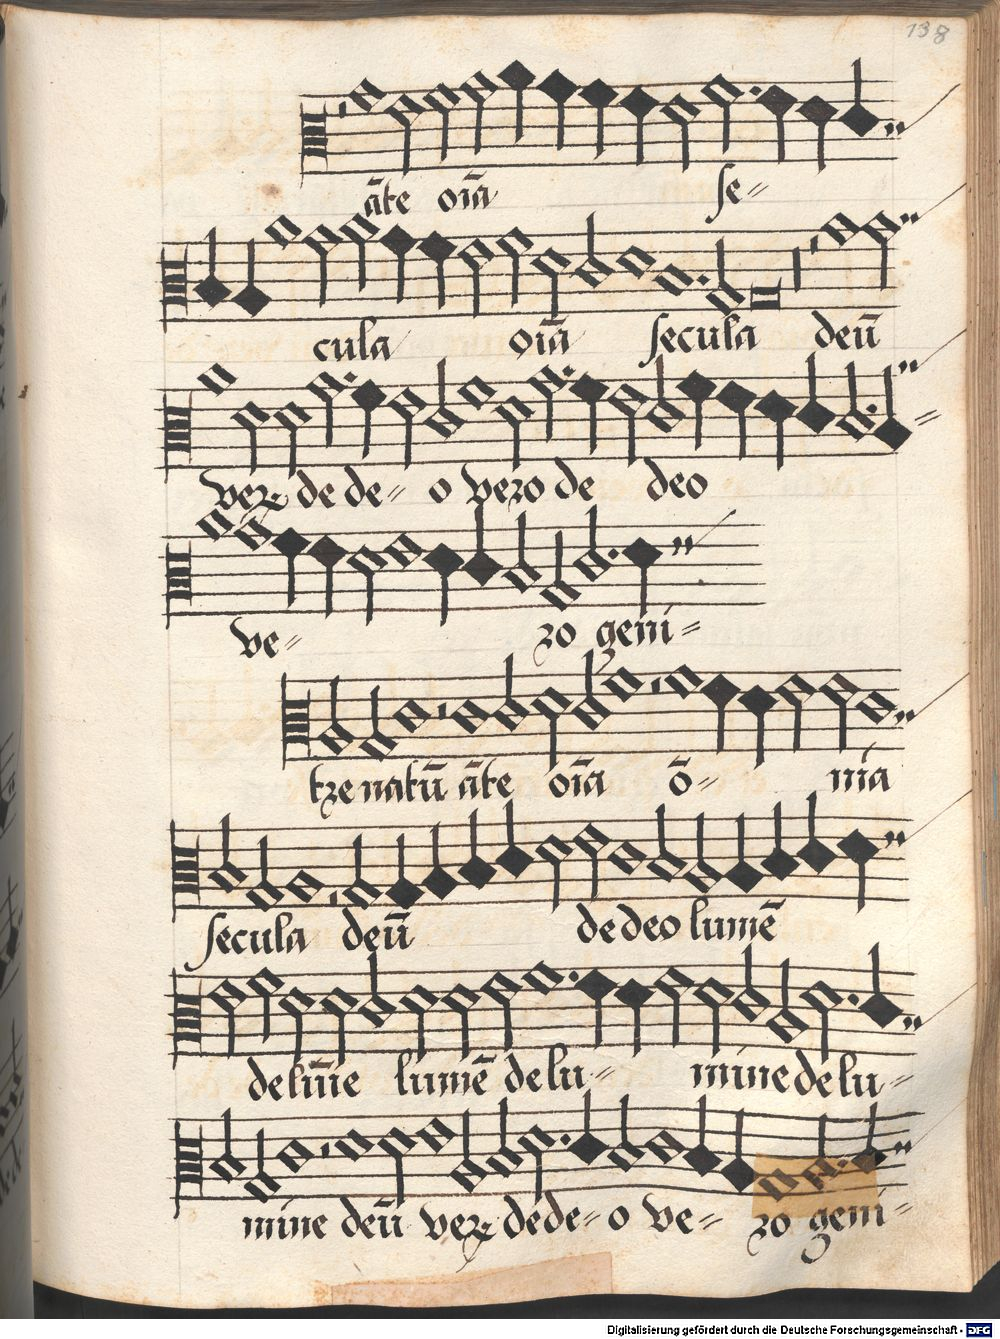 138
ãte oĩa se=
cula oĩa secula deũ
veꝝ de de= o vero de deo
ve= ro geni=
tre natũ ãte oĩa õ= nia
secula deũ de deo lumẽ
de lũie lumẽ de lu= mine de lu=
mine deũ veꝝ de de= o ve= ro geni=
Digitalisierung gefördert durch die Deutsche Forschungsgemeinschaft - DFG